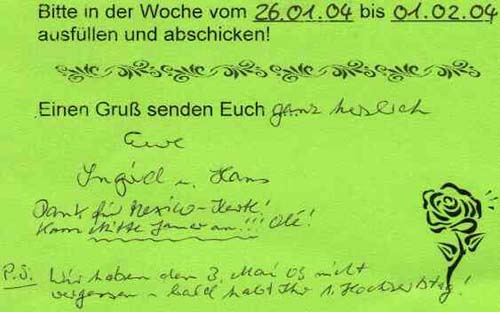 Bitte in der Woche vom 26.01.04 bis 01.02.04
ausfüllen und abschicken!
Einen Gruß senden Euch ganz herzlich
Eure
Ingrid u. Hans
Dank für Mexico-Karte!
Kam Mitte Januar an!!! Olé!
P.S. Wir haben den 3. Mai 03 nicht
vergessen – bald habt Ihr 1. Hochzeitstag!